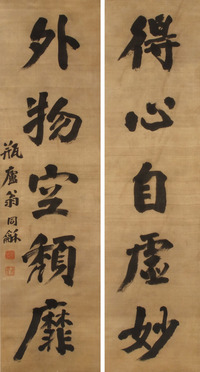 得心自虛妙
外物空頹靡
瓶廬翁同龢